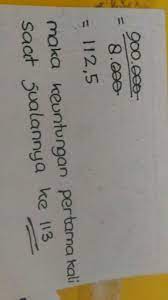 = 900.000
8.000
= 112,5
maka keuntungan pertama kali
saat jualannya ke 113